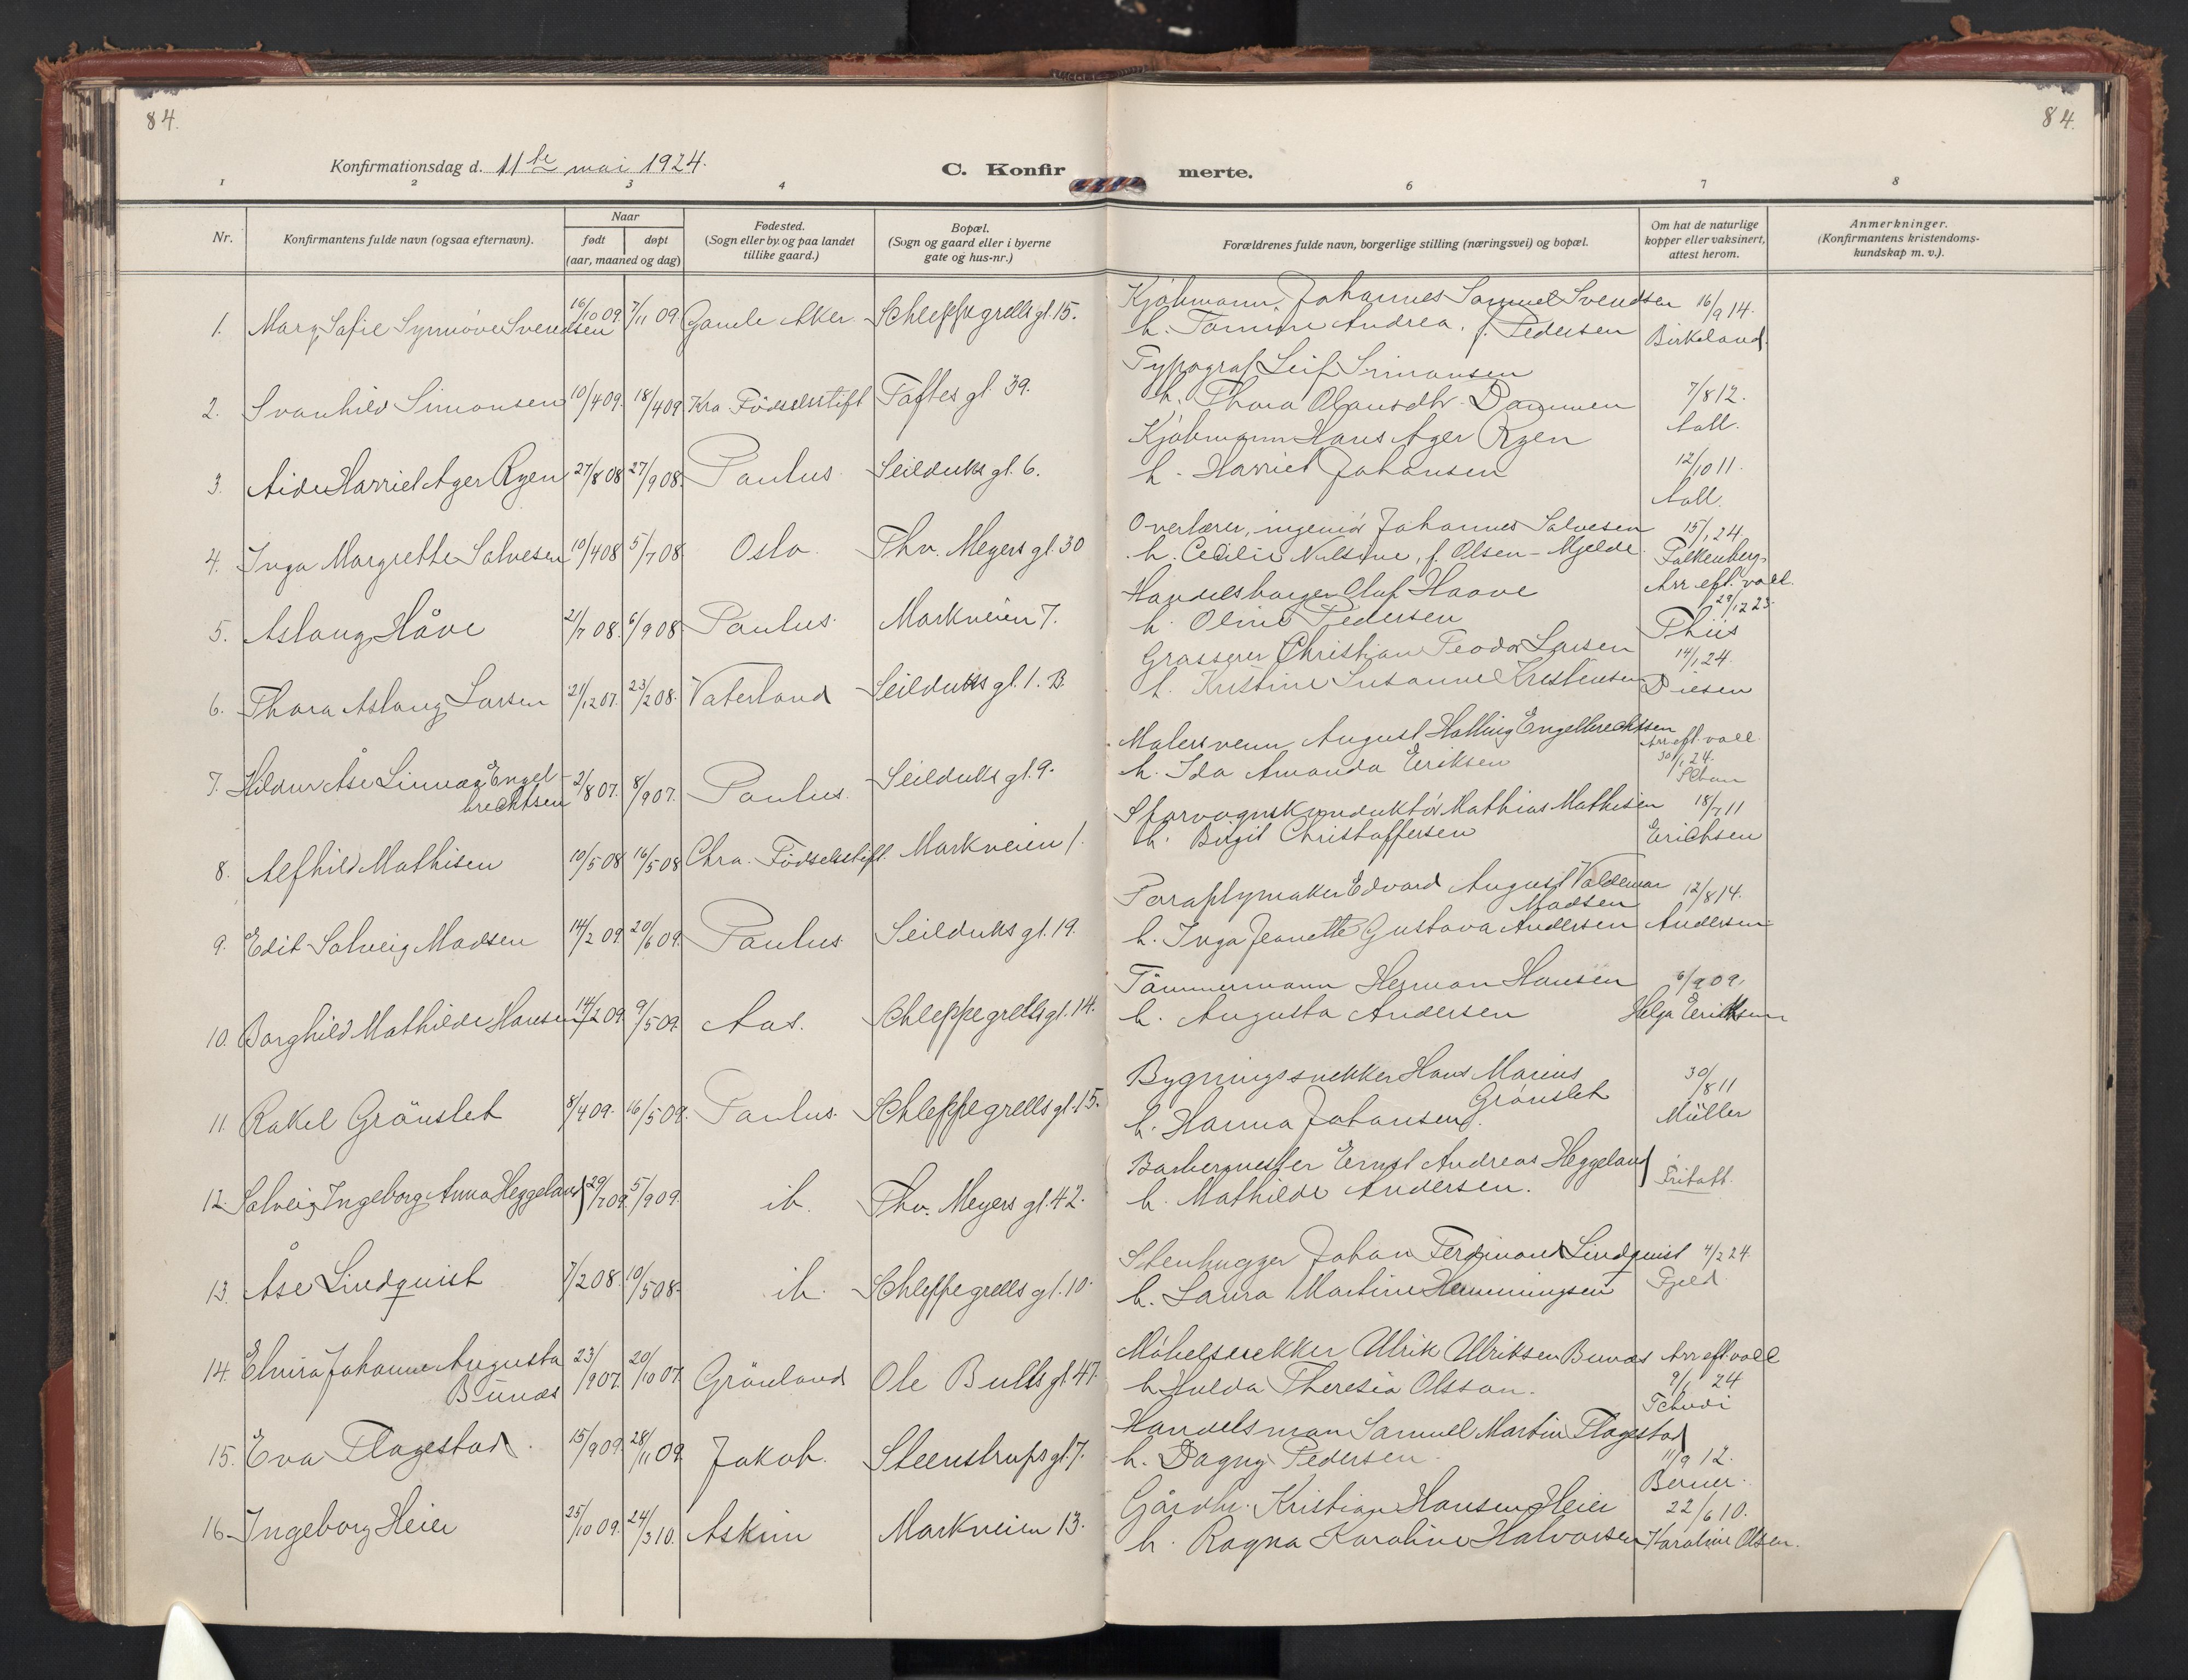 84.
84.
Konfirmationsdag d. 11te mai 1924.
C. Konfirmerte.
1 2 3 4 6 7 8
Nr.
Konfirmantens fulde navn (ogsaa efternavn).
Naar
født døpt
(aar, maaned og dag)
Fødested.
(Sogn eller by. og paa landet
tillike gaard.)
Bopæl.
(Sogn og gaard eller i byerne
gate og hus-nr.)
Forældrenes fulde navn, borgerlige stilling (næringsvei) og bopæl.
Om hat de naturlige
kopper eller vaksinert,
attest herom.
Anmerkninger.
(Konfirmantens kristendoms-
kundskap m. v.).
1. Mary Sofie Synnøve Svendsen 16/10 09. 7/11 09 Gamle Aker. Schleppegrells gt. 15.
Kjøbmann Johannes Samuel Svendsen 16/9 14.
h. Tomine Andrea, f. Pedersen Birkeland.
2. Svanhild Simonsen 10/4 09. 18/4 09 Kra Fødselsstift Toftes gt 39.
Typograf Leif Simonsen 7/8 12.
h. Thora Olausdtr. Dammen Aall.
3. Aide Harriet Ager Ryen 27/8 08 27/9 08. Paulus Seilduks gt. 6.
Kjøbmann Hans Ager Ryen 12/10 11.
h. Harriet Johansen Aall.
4. Inga Margrethe Salvesen 10/4 08 5/7 08 Oslo. Thv. Meyers gt. 30
Overlærer, ingeniør Johannes Salvesen 15/1 24
h. Cecilie Nilsine, f. Olsen-Mjelde. Falkenberg.
5. Aslaug Håve 21/7 08. 6/9 08 Paulus. Markveien 7.
Handelsborger Oluf Haave Arr eft. vall.
29/12 23.
h. Oline Pedersen Thiis
6. Thora Aslaug Larsen 21/12 07. 23/2 08. Vaterland Seilduks gt. 1. B.
Grasserer Christian Teodor Larsen 14/1 24.
h. Kristine Susanne Kristensen Diesen
7. Hildur Åse Linnae Engel-
brechtsen 2/8 07. 8/9 07. Paulus. Seilduks gt. 9.
Malersvenn August Halling Engelbrechtsen Arr eft. vall.
30/1 24.
h. Ida Amanda Eriksen
8. Alfhild Mathisen 10/5 08 16/5 08 Chra. Fødselsstift. Markveien 1.
Sporvognskonduktør Mathias Mathisen 18/7 11
h. Birgit Christoffersen Erichsen
9. Edit Solveig Madsen 14/2 09 20/6 09. Paulus. Seilduks gt. 19.
Paraplymaker Edvard August Valdemar
Madsen 12/8 14.
h. Inga Jeanette Gustava Andersen Andersen
10. Borghild Mathilde Hansen 14/2 09. 9/5 09. Aas. Schleppegrells gt. 14.
Tømmermann Herman Hansen 6/9 09.
h. Augusta Andersen Helga Eriksen
11. Rakel Grønslet 8/4 09. 16/5 09. Paulus. Schleppegrells gt. 15.
Bygningssnekker Hans Marius
Grønslet 30/8 11
h. Hanna Johansen. Müller
12. Solveig Ingeborg Anna Heggeland 29/7 09. 5/9 09. ib. Thv. Meyers gt. 42.
Barbermester Ernst Andreas Heggeland
h. Mathilde Andersen. Fritatt.
13. Åse Lindquist 7/2 08. 10/5 08. ib. Schleppegrells gt. 10.
Stenhugger Johan Ferdinand Lindquist 4/2 24
h. Laura Martine Hemmingsen Fjeld.
14. Elvira Johanne Augusta
Bunæs 23/9 07. 20/10 07 Grønland Ole Bulls gt. 47.
Møbelsnekker Ulrik Ulriksen Bunæs Arr eft vall
h. Hulda Theresia Olsson. 9/1 24
Tchudi
15. Eva Flagestad. 15/9 09. 28/11 09. Jakob. Steenstrups gt. 7.
Handelsman Samuel Martin Flagestad
h. Dagny Pedersen. 11/9 12.
Berner.
16. Ingeborg Heier 25/10 09. 24/3 10. Askim Markveien 13.
Gårdbr. Kristian Hansen Heier 22/6 10.
h. Ragna Karoline Halvorsen Karoline Olsen.